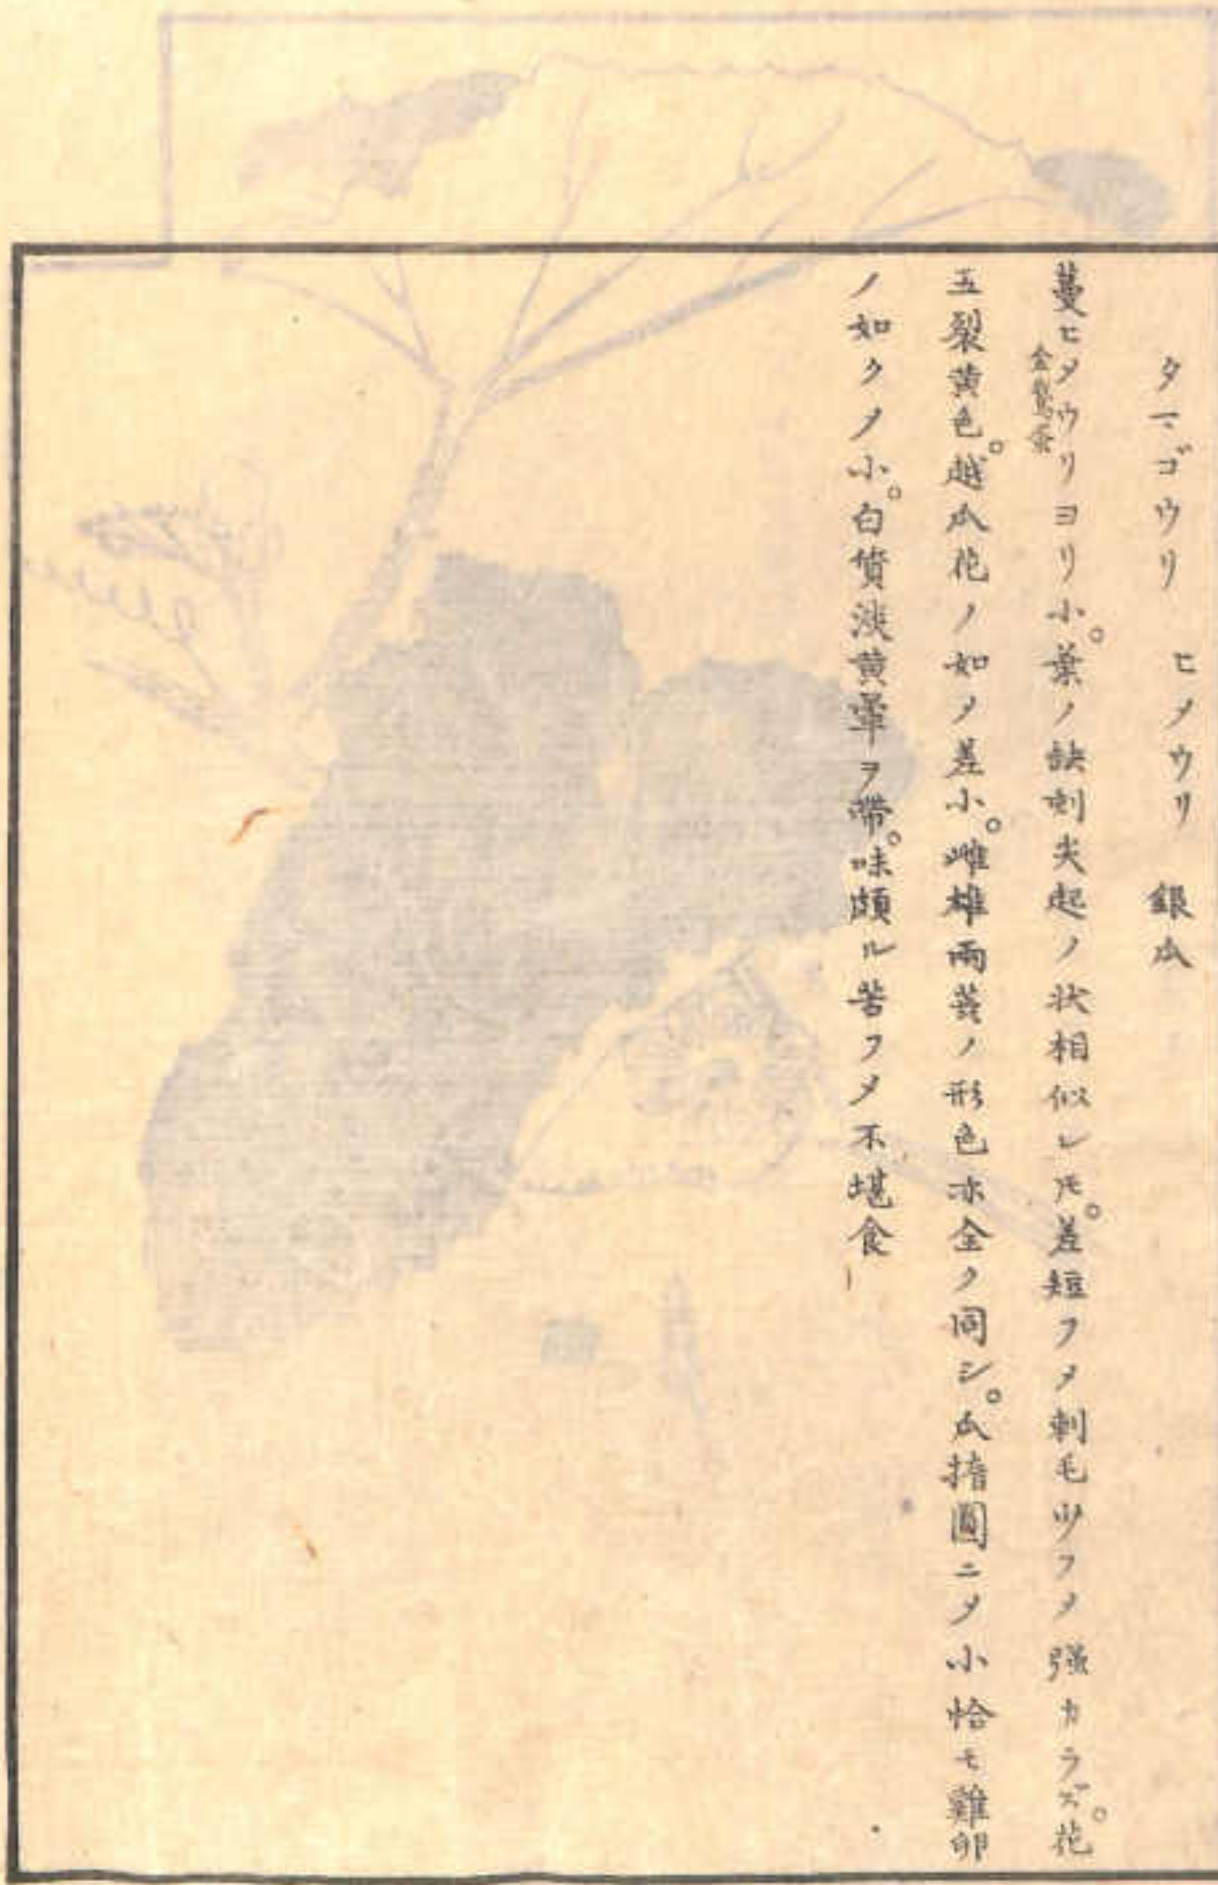 タマゴウリ　ヒメウリ　銀瓜
蔓ヒメウリヨリ小。葉ノ缺刻尖起ノ状相似レ𪜈。差短フ〆刺毛少フ〆强カラズ。花
金鵞蛋
五裂黄色。越瓜花ノ如〆差小。雌雄兩蘂ノ形色亦全ク同シ。瓜楕圓ニ〆小恰モ雞卵
ノ如ク〆小。白質淡黄暈ヲ帶。味頗ル苦フ〆不堪食